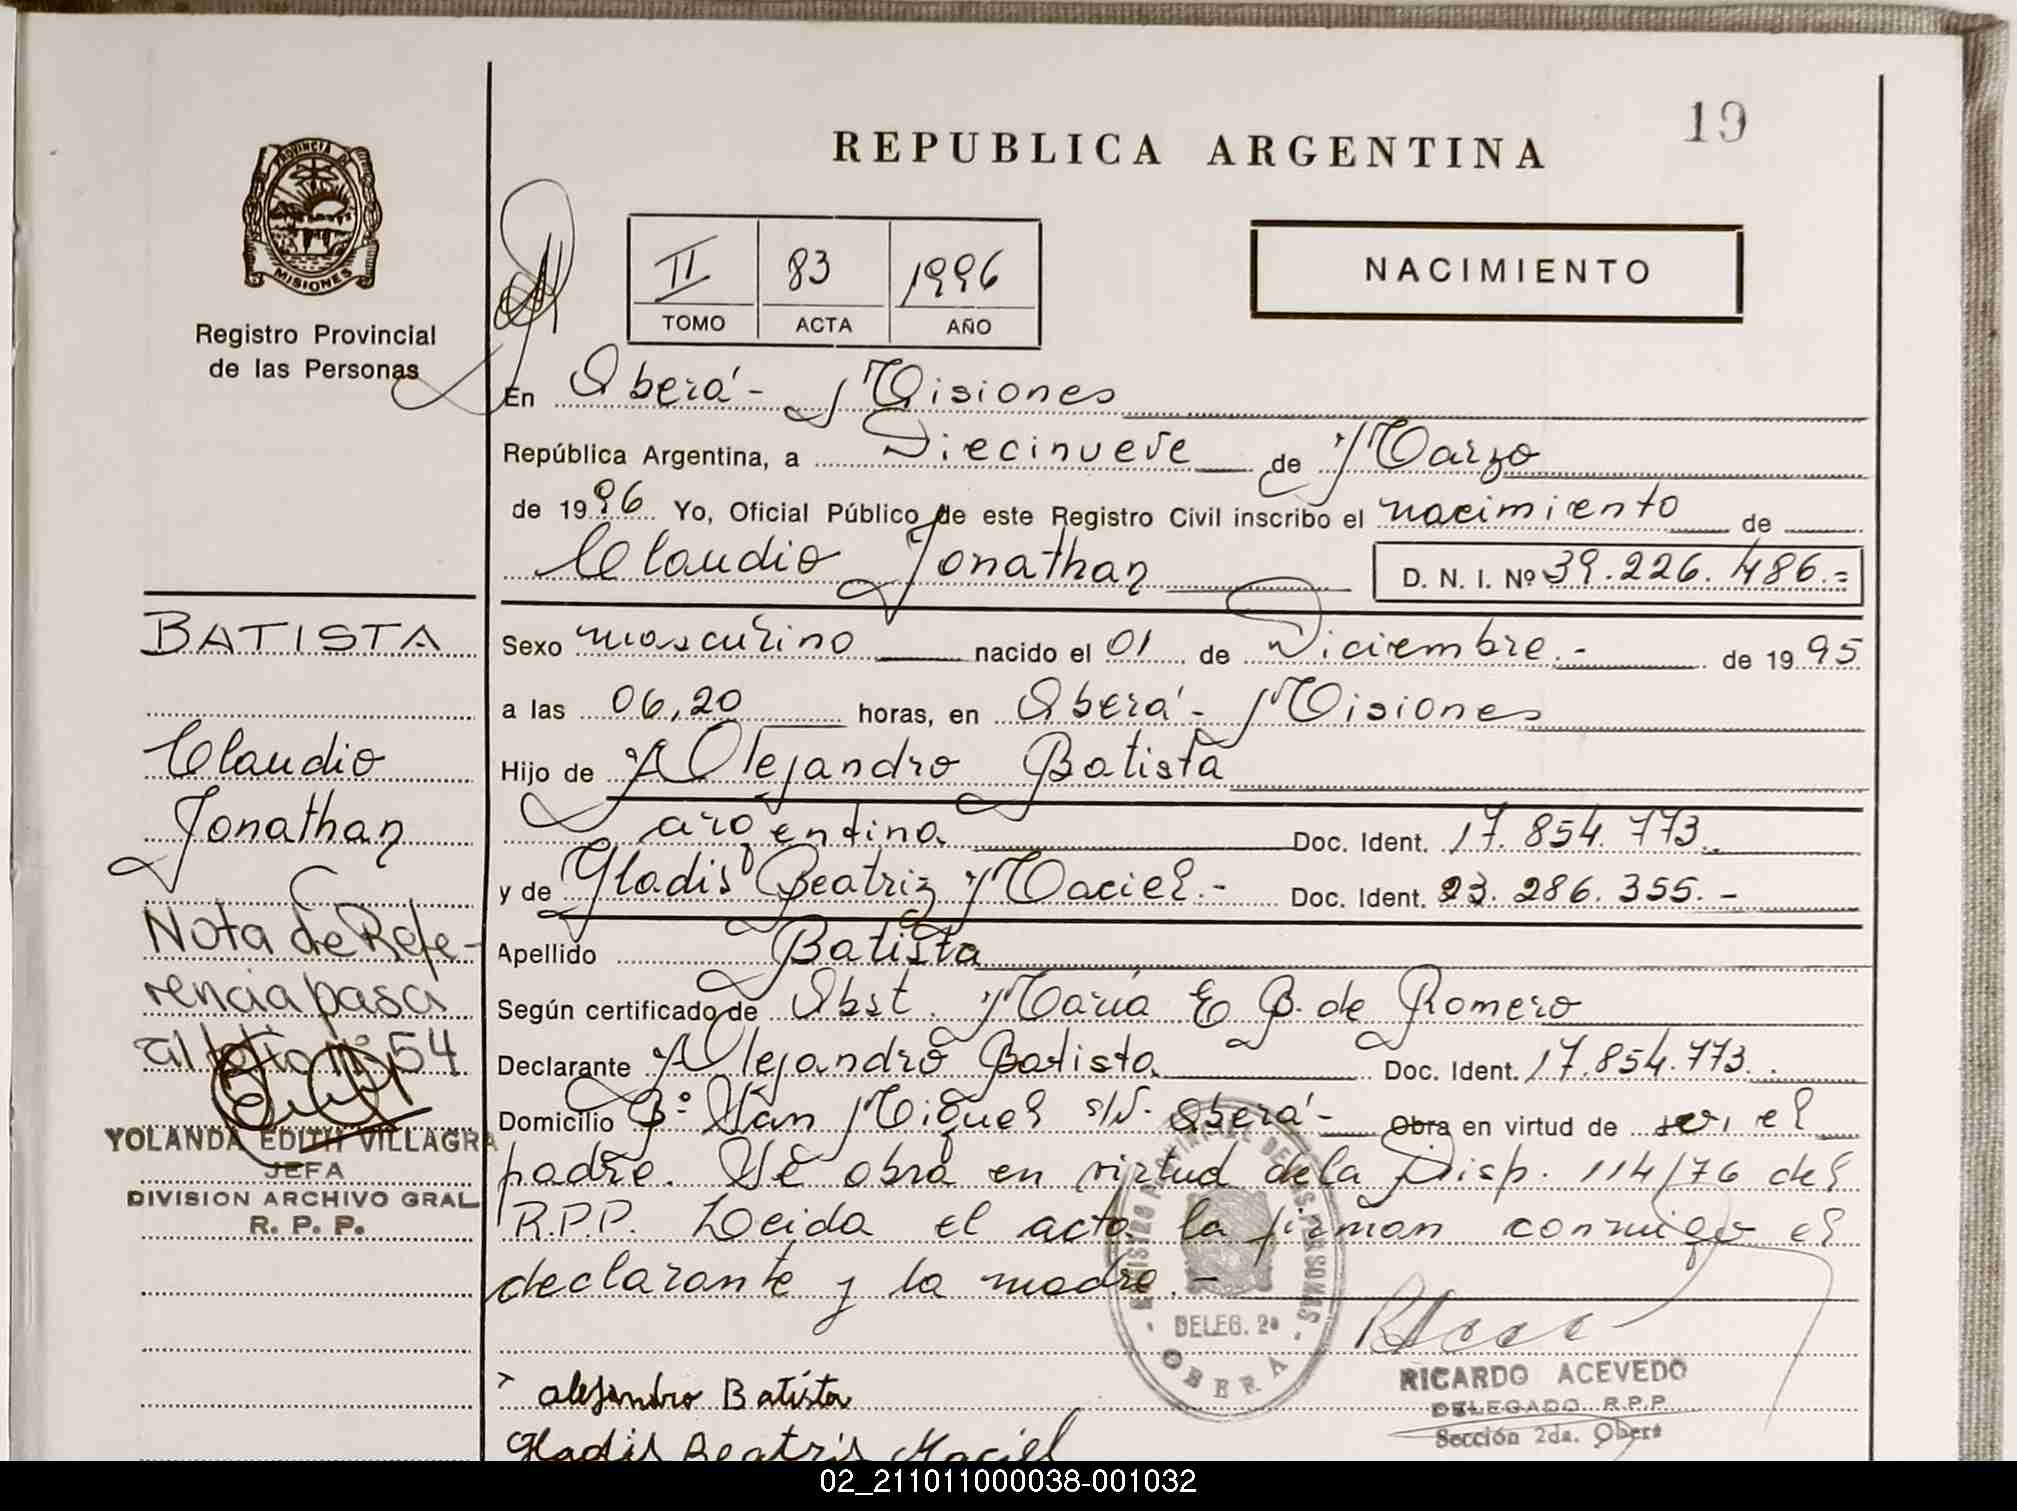 19
REPUBLICA ARGENTINA
PROVINCIA DE
MISIONES
Registro Provincial
de las Personas
II 83 1996
TOMO ACTA AÑO
NACIMIENTO
En Oberá - Misiones
República Argentina, a Diecinueve de Marzo
de 1996 Yo, Oficial Público de este Registro Civil inscribo el nacimiento de
Claudio Jonathan D. N. I. Nº 39.226.486.=
BATISTA
Claudio
Jonathan
Nota de Refe-
rencia pasa
al folio nº 54
YOLANDA EDITH VILLAGRA
JEFA
DIVISION ARCHIVO GRAL
R. P. P.
Sexo masculino nacido el 01 de Diciembre.- de 1995
a las 06,20 horas, en Oberá - Misiones
Hijo de Alejandro Batista
argentina Doc. Ident. 17.854.773.
y de Gladis Beatriz Maciel.- Doc. Ident. 23.286.355.-
Apellido Batista
Según certificado de Obst. María E B. de Romero
Declarante Alejandro Batista Doc. Ident. 17.854.773.
Domicilio Bº San Miguel s/N. Oberá - Obra en virtud de ser el
padre. Se obra en virtud de la Disp. 114/76 del
R.P.P. Leida el acta la firman conmigo el
declarante y la madre.-
REGISTRO PROVINCIAL DE LAS PERSONAS
DELEG. 2ª
OBERA
RICARDO ACEVEDO
DELEGADO R.P.P.
Sección 2da. Oberá
Alejandro Batista
Gladis Beatris Maciel
02_211011000038-001032